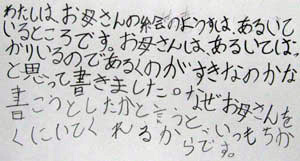 わたしは、お母さんの絵のようすは、あるいて
いるところです。お母さんは、あるいてばっ
かりいるのであるくのがすきなのかな
と思って書きました。なぜお母さんを
書こうとしたかと言うと、いっもちか
くにいてくれるからです。